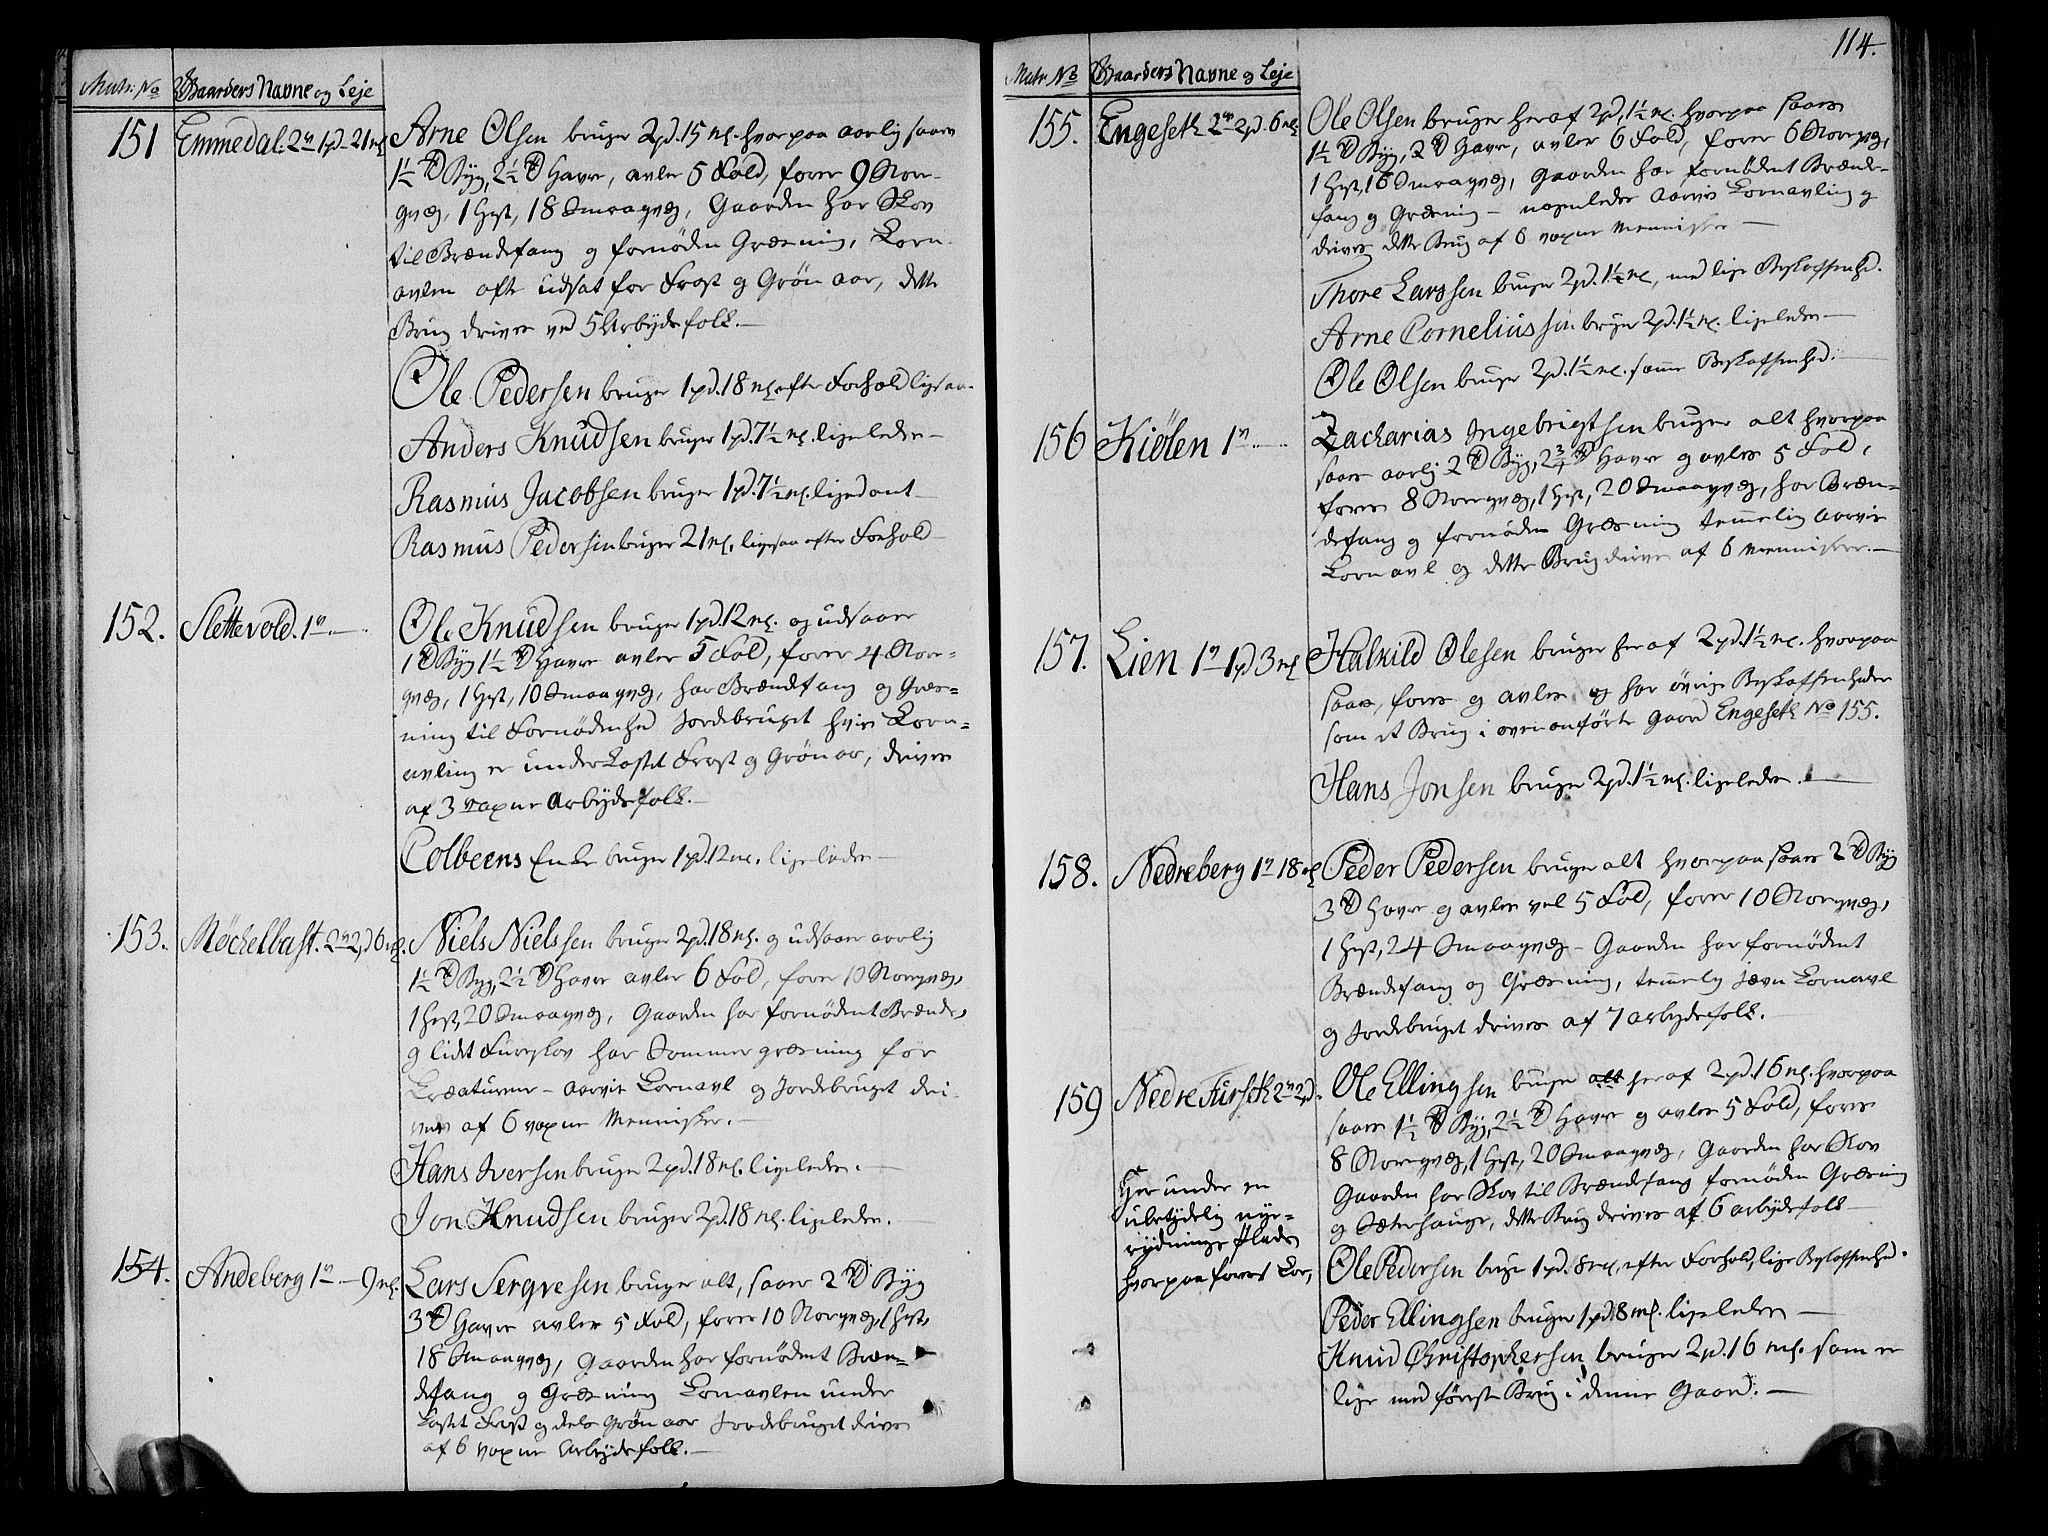 Matr: No Gaardens Navne og Leje
151 Emmedal. 2v 1pd. 21 mk Arne Olsen bruger 2pd. 15 mk. hvorpaa aarlig saaes
1½ Td Byg, 2½ Td Havre, avler 5 Fold, föder 9 Stor-
qvæg, 1 Hest, 18 Smaaqvæg, Gaarden har Skov
til Brændefang og fornöden Græsning, Korn-
avlen ofte udsat for Frost og Grön aar, dette
Brug drives ved 5 Arbydsfolk. —
Ole Pedersen bruger 1pd. 18 mk. efter Forhold ligesaa-
Anders Knudsen bruger 1pd. 7½ mk. ligeledes —
Rasmus Jacobsen bruger 1pd. 7½ mk. ligedant —
Rasmus Pedersen bruger 21 mk. ligesaa efter Forhold —
152. Slettevold. 1v. — Ole Knudsen bruger 1pd. 12 mk. og udsaaer
1 Td Byg 1½ Td Havre avler 5 Fold, föder 4 Stor-
qvæg, 1 Hest, 10 Smaaqvæg, har Brændefang og Græs-
ning til Fornödenhed Jordebruget hvis Korn-
avling er underkastet Frost og Grön aar, drives
af 3 voxne Arbydsfolk. —
Colbeens Enke bruger 1pd. 12 mk. ligeledes —
153. Möchelbast. 2v 2pd 6 mk. Niels Nielssen bruger 2pd. 18 mk. og udsaaer aarlig
1½ Td Byg, 2½ Td Havre avler 6 Fold, föder 10 Storqvæg,
1 Hest, 20 Smaaqvæg, Gaarden har fornödent Brænde,
og lidet Fureskov har Sommergræsning for
Kreaturene — aarvis Kornavl og Jordebruget dri-
ves af 6 voxne Mennisker. —
Hans Iversen bruger 2pd. 18 mk. ligeledes. —
Jon Knudsen bruger 2pd. 18 mk. ligeledes. —
154. Andeberg 1v — 9 mk. Lars Serqvesen bruger alt, saaer 2 Td Byg
3 Td Havre avler 5 Fold, föder 10 Storqvæg, 1 Hest,
18 Smaaqvæg, Gaarden har fornödent Bræn-
defang og Græsning Kornavlen under
kastet Frost og dels Grön aar Jordebruget drives
af 6 voxne Arbejdsfolk. —
114.
Matr No Gaardens Navne og Leje
155. Engeseth 2v 2pd. 6 mk Ole Olsen bruger heraf 2pd. 1½ mk. hvorpaa saaes
1½ Td Byg, 2 Td Havre, avler 6 Fold, föder 6 Storqvæg,
1 Hest, 16 Smaaqvæg, Gaarden har fornödent Brænde-
fang og Græsning — nogenledes Aarvis Kornavling og
drives dette Brug af 6 voxne Mennisker —
Thore Larssen bruger 2pd. 1½ mk, med lige Beskaffenhed.
Arne Corneliussen bruger 2pd. 1½ mk. ligeledes —
Ole Olsen bruger 2pd. 1½ mk. samme Beskaffenhed. —
156 Kiölen 1v. — Zacharias Ingebrigtsen bruger alt hvorpaa
saaes aarlig 2 Td Byg, 2¾ Td Havre og avles 5 Fold,
födes 8 Storqvæg, 1 Hest, 20 Smaaqvæg, har Bræn-
defang og fornöden Græsning temmelig aarvis
Kornavl og dette Brug drives af 6 Mennisker. —
157. Lien 1v 1pd 3 mk Halvild Olesen bruger heraf 2pd. 1½ mk. hvorpaa
saaes, födes og avles og har övrige Beskaffenheder
som et Brug i ovenanförte Gaard Engeseth No 155.
Hans Jonsen bruger 2pd. 1½ mk. ligeledes. —
158. Nedreberg 1v 18 mk Peder Pedersen bruger alt hvorpaa saaes 2 Td Byg
3 Td Havre og avles vel 5 Fold, föder 10 Storqvæg,
1 Hest, 24 Smaaqvæg — Gaarden har fornödent
Brændefang og Græsning, temmelig Jævn Kornavl
og Jordebruget drives af 7 arbydsfolk. —
159 Nedre Furseth 2v 2pd. Ole Ellingsen bruger alt heraf 2pd. 16 mk. hvorpaa
saaes 1½ Td Byg, 2½ Td Havre og avles 5 Fold, födes
8 Storqvæg, 1 Hest, 20 Smaaqvæg, Gaarden har Skov
Gaarden har Skov til Brændefang fornöden Græsning
og Sæterhauge, dette Brug drives af 6 arbydsfolk —
Her under en
ubetydelig nye-
rydnings Plads
hvorpaa födes Kör,
Ole Pedersen bruger 1pd. 8 mk, efter Forhold, lige Beskaffenhed.
Peder Ellingsen bruger 1pd. 8 mk. ligeledes —
Knud Christophersen bruger 2pd. 16 mk. som er
lige med förste Brug i denne Gaard. —